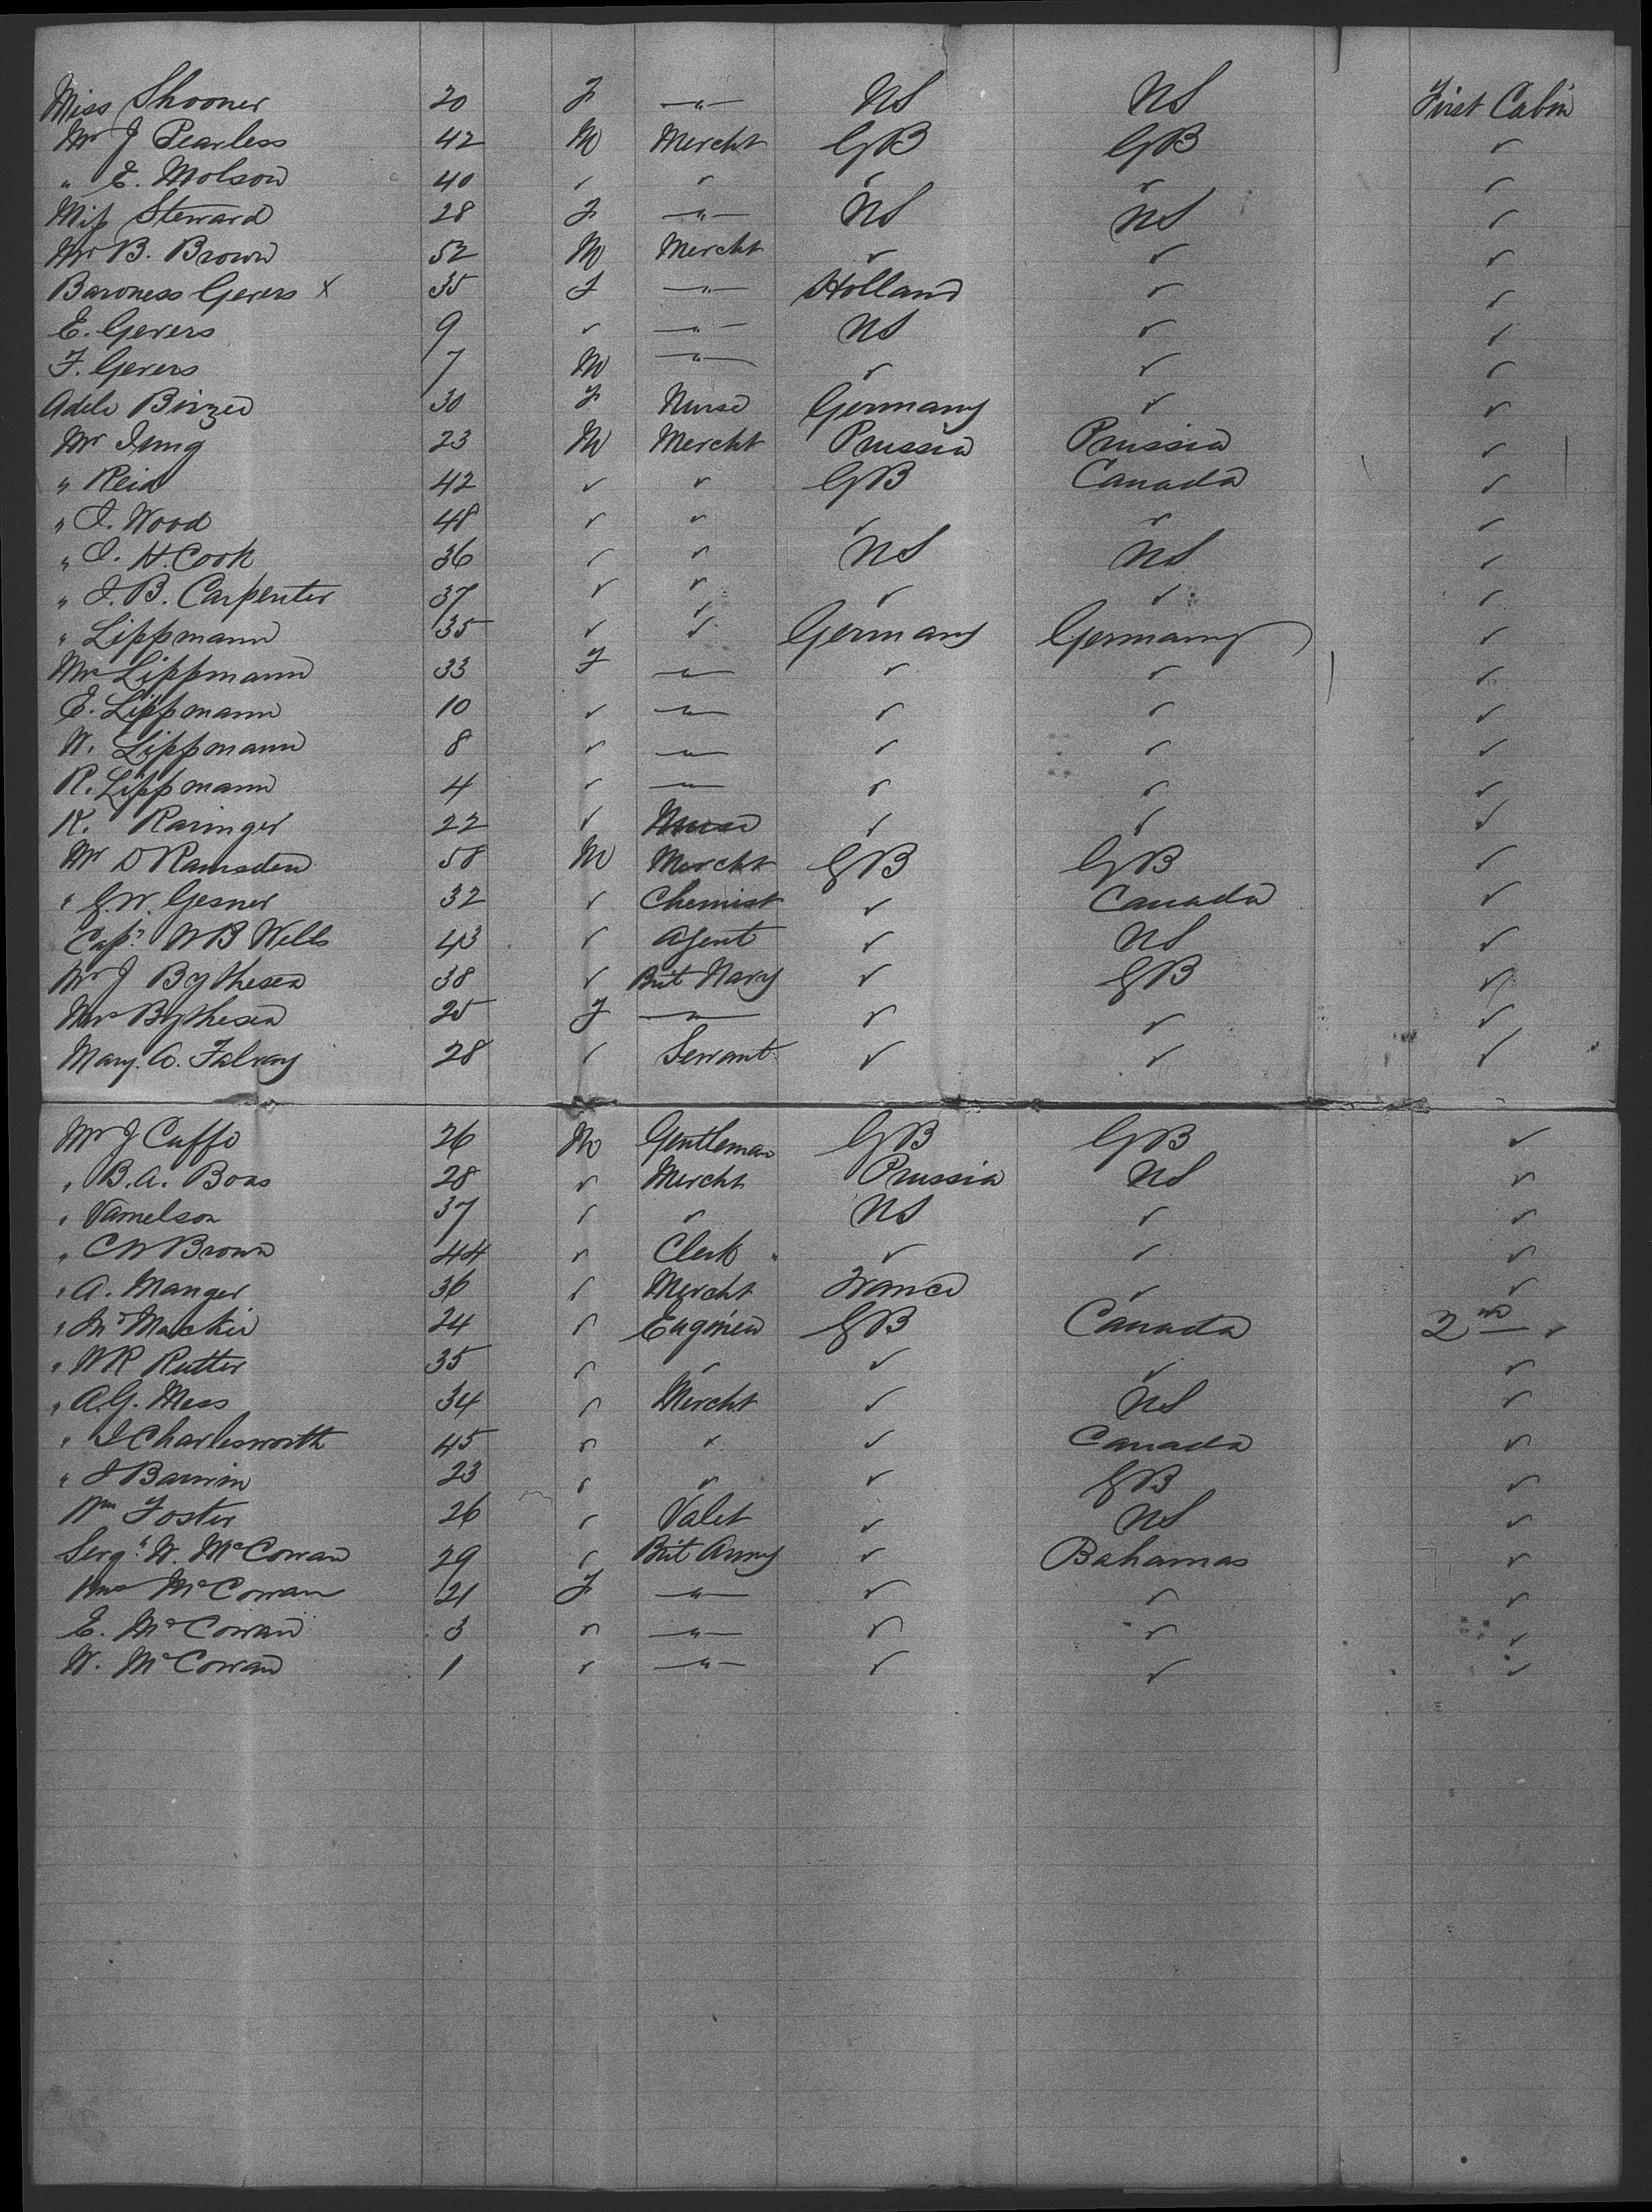 Miss Shooner 20 F —"— US US First Cabin
Mr J Pearless 42 M Mercht GB GB ✓
" E. Molson 40 ✓ ✓ ✓ ✓ ✓
Miss Steward 28 F —"— US US ✓
Mr B. Brown 52 M Mercht ✓ ✓ ✓
Baroness Gevers X 35 F —"— Holland ✓ ✓
E. Gevers 9 ✓ —"— US ✓ ✓
F. Gevers 7 M —"— ✓ ✓ ✓
Adele 30 F Nurse Germany ✓ ✓
Mr Jung 23 M Mercht Prussia Prussia ✓
" Reid 42 ✓ ✓ GB Canada ✓
" J. Wood 48 ✓ ✓ ✓ ✓ ✓
" J. H. Cook 36 ✓ ✓ US US ✓
" J. B. Carpenter 37 ✓ ✓ ✓ ✓ ✓
" Lippmann 35 ✓ ✓ Germany Germany ✓
Mrs Lippmann 33 F —"— ✓ ✓ ✓
E. Lippmann 10 ✓ —"— ✓ ✓ ✓
W. Lippmann 8 ✓ —"— ✓ ✓ ✓
R. Lippmann 4 ✓ —"— ✓ ✓ ✓
K. Raringer 22 ✓ Nurse ✓ ✓ ✓
Mr D Ramsden 58 M Mercht GB GB ✓
" G. W. Gesner 32 ✓ Chemist ✓ Canada ✓
Capt. W B Wells 43 ✓ Agent ✓ US ✓
Mr J Bythesea 38 ✓ Brit Navy ✓ GB ✓
Mrs Bythesea 25 F —"— ✓ ✓ ✓
Mary. A. Falvey 28 ✓ Servant ✓ ✓ ✓
Mr J Cuffe 26 M Gentleman GB GB ✓
" B. A. Boas 28 ✓ Mercht Prussia US ✓
" Vamelson 37 ✓ ✓ US ✓ ✓
" C W Brown 44 ✓ Clerk ✓ ✓ ✓
" A. Manger 36 ✓ Mercht France ✓ ✓
" Mackie 24 ✓ Engineer GB Canada 2nd ✓
" W R Rutter 35 ✓ ✓ ✓ ✓ ✓
" A. G. Mess 34 ✓ Mercht ✓ US ✓
" J Charlesworth 45 ✓ ✓ ✓ Canada ✓
" J Barwin 23 ✓ ✓ ✓ GB ✓
Wm Foster 26 ✓ Valet ✓ US ✓
Sergt. W. McCowan 29 ✓ Brit Army ✓ Bahamas ✓
Mrs McCowan 21 F —"— ✓ ✓ ✓
E. McCowan 3 ✓ —"— ✓ ✓ ✓
W. McCowan 1 ✓ —"— ✓ ✓ ✓